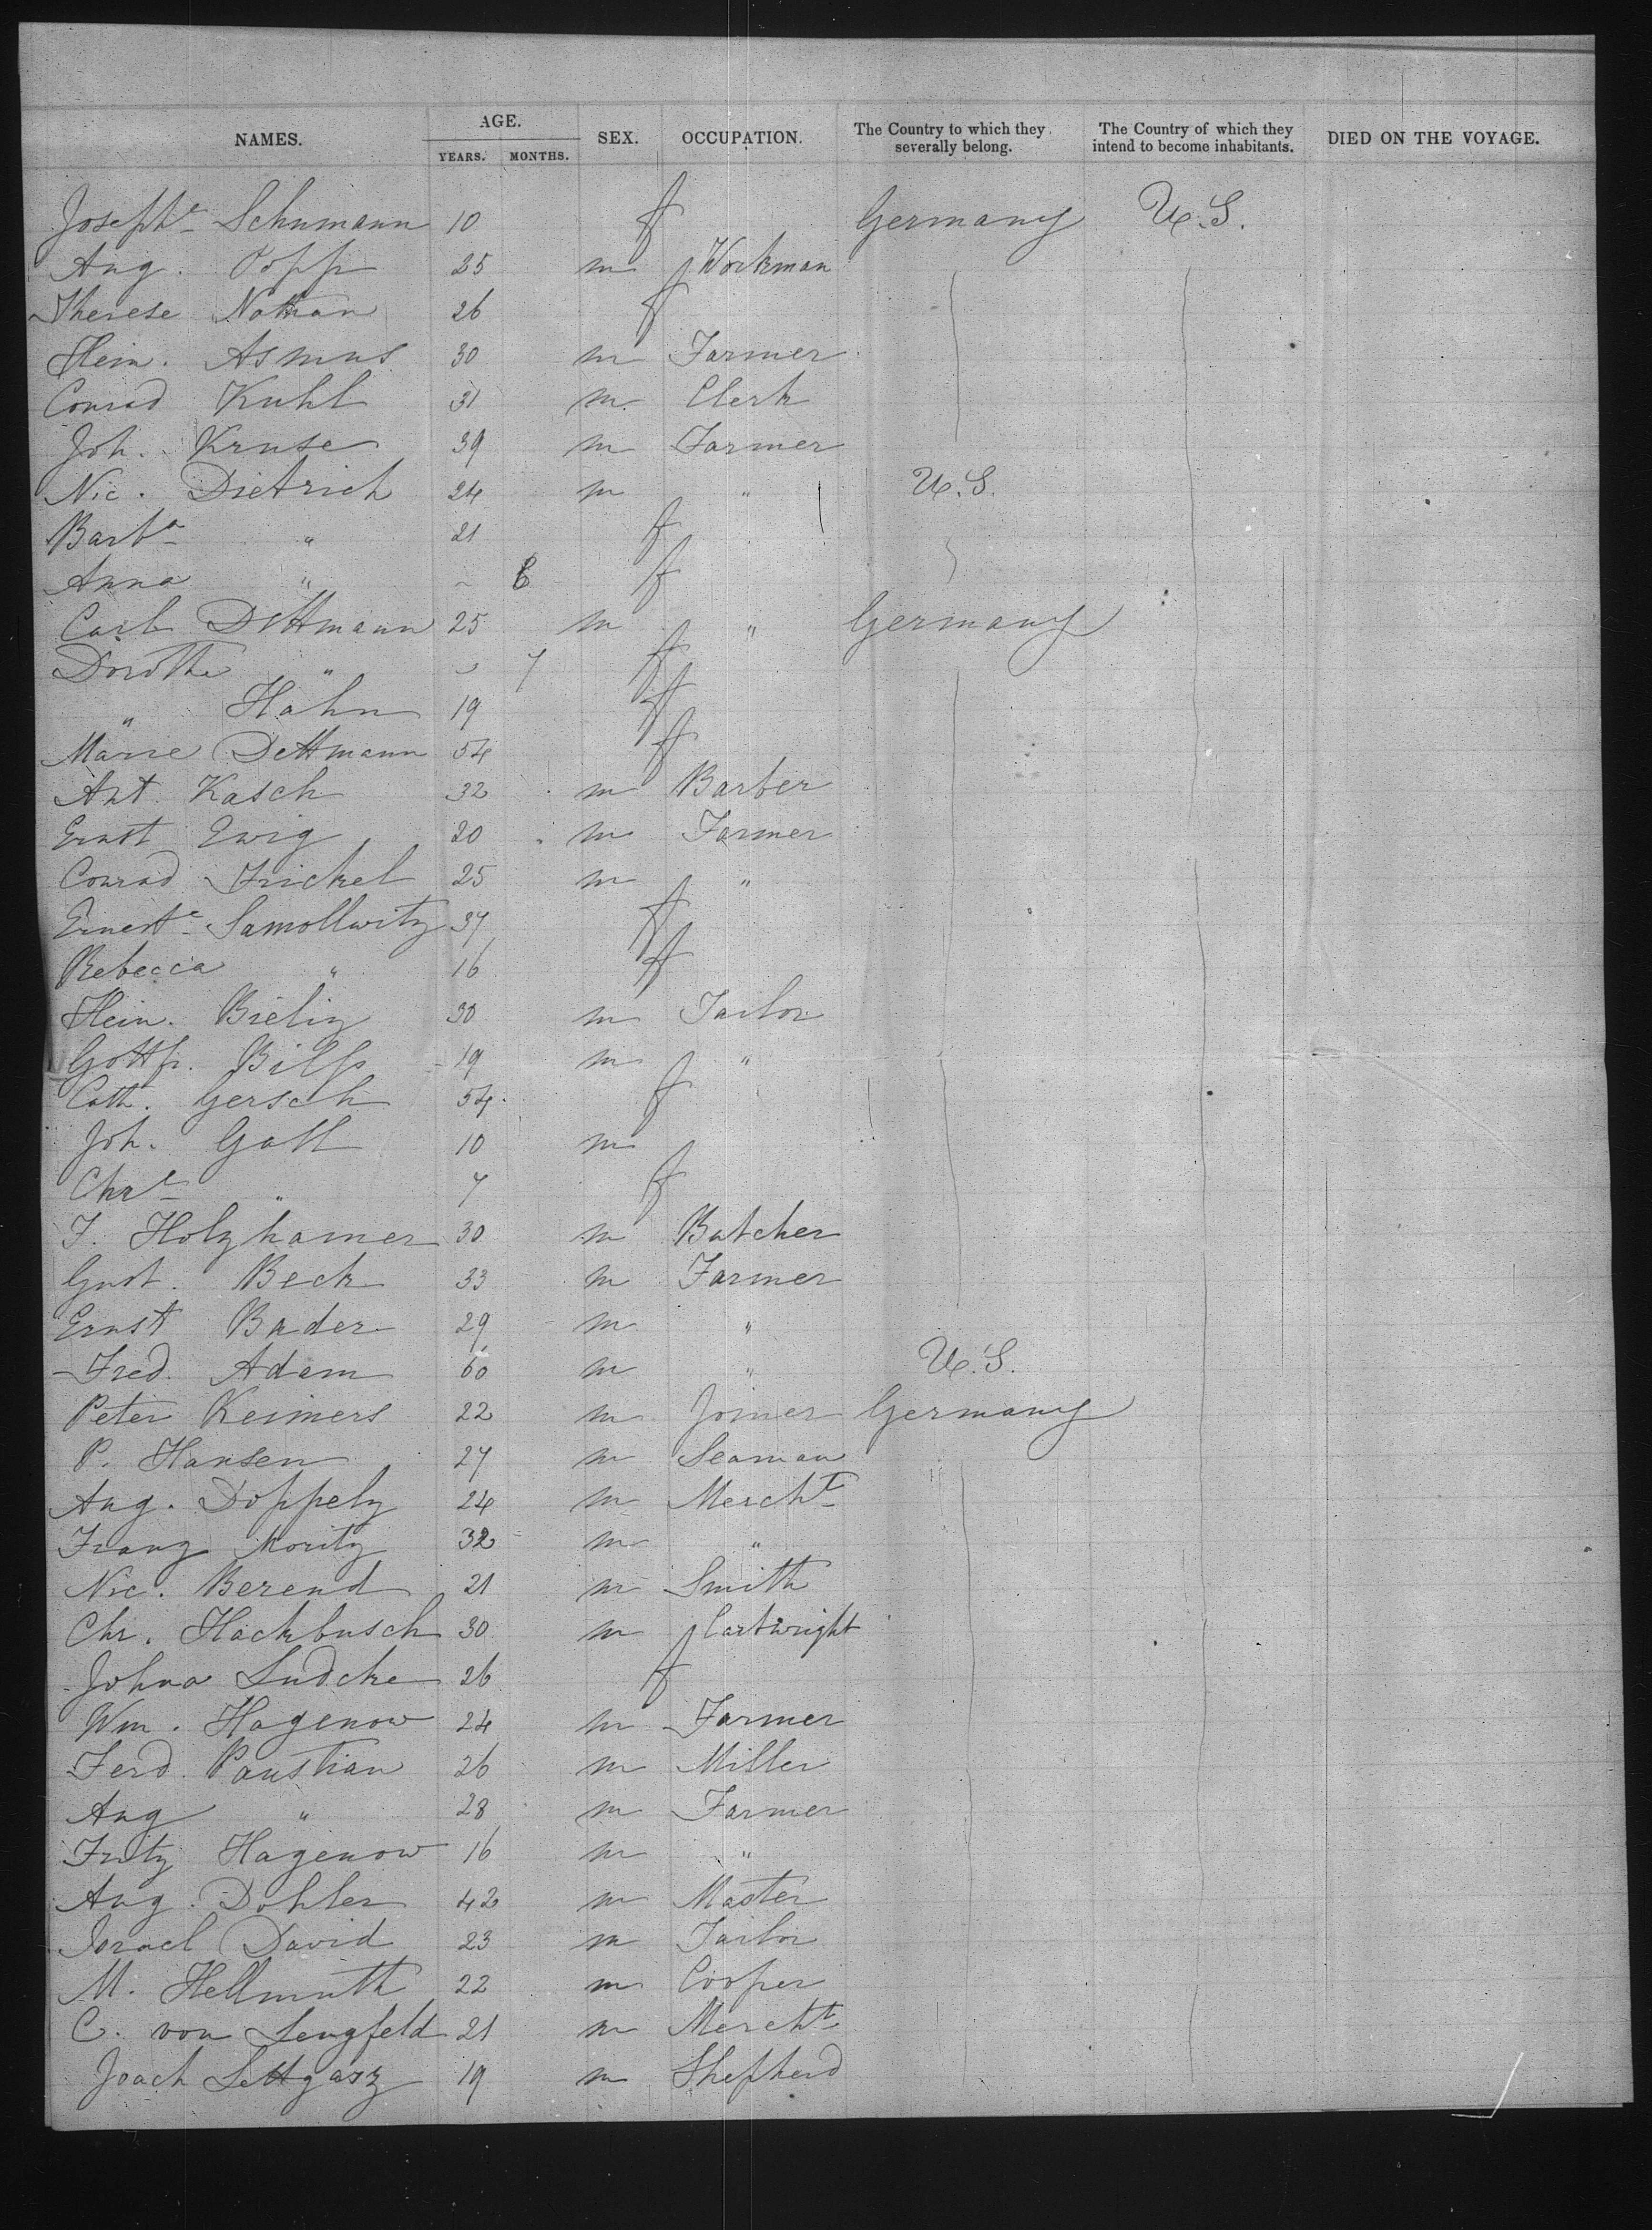 NAMES. AGE. SEX. OCCUPATION. The Country to which they severally belong. The Country of which they intend to become inhabitants. DIED ON THE VOYAGE.
YEARS. MONTHS.
Josephe Schumann 10 f Germany U.S.
Aug. Popp 25 m Workman
Therese Nathan 26 f
Hein. Asmus 30 m Farmer
Conrad Kuhl 31 m Clerk
Joh. Kruse 39 m Farmer
Nic. Dietrich 24 m " U.S.
Barba " 21 f
Anna " ~ 6 f
Carl Dettmann 25 m " Germany
Dorothe " ~ 7 f
" Hahn 19 f
Marie Dettmann 54 f
Ant. Kasch 32 m Barber
Ernst Ewig 20 m Farmer
Conrad Frickel 25 m "
Erneste Samollwitz 37 f
Rebecca " 16 f
Hein. Bieliz 30 m Tailor
Gottfr. 19 m "
Cath. Gersch 54 f
Joh. Gall 10 m
Chre " 7 f
J. Holzhamer 30 m Butcher
Gust. Beck 33 m Farmer
Ernst Bader 29 m "
Fred. Adam 60 m " U.S.
Peter Reimers 22 m Joiner Germany
P. Hansen 27 m Seaman
Aug. Doppely 24 m Mercht
Franz Moritz 32 m "
Nic. Berend 21 m Smith
Chr. Hackbusch 30 m Cartwright
Johna Ludcke 26 f
Wm. Hagenow 24 m Farmer
Ferd. Paustian 26 m Miller
Aug " 28 m Farmer
Fritz Hagenow 16 m "
Aug. Dohler 42 m Master
Israel David 23 m Tailor
M. Hellmuth 22 m Cooper
C. von Lengfeld 21 m Mercht
Joach Lettgasz 19 m Shepherd